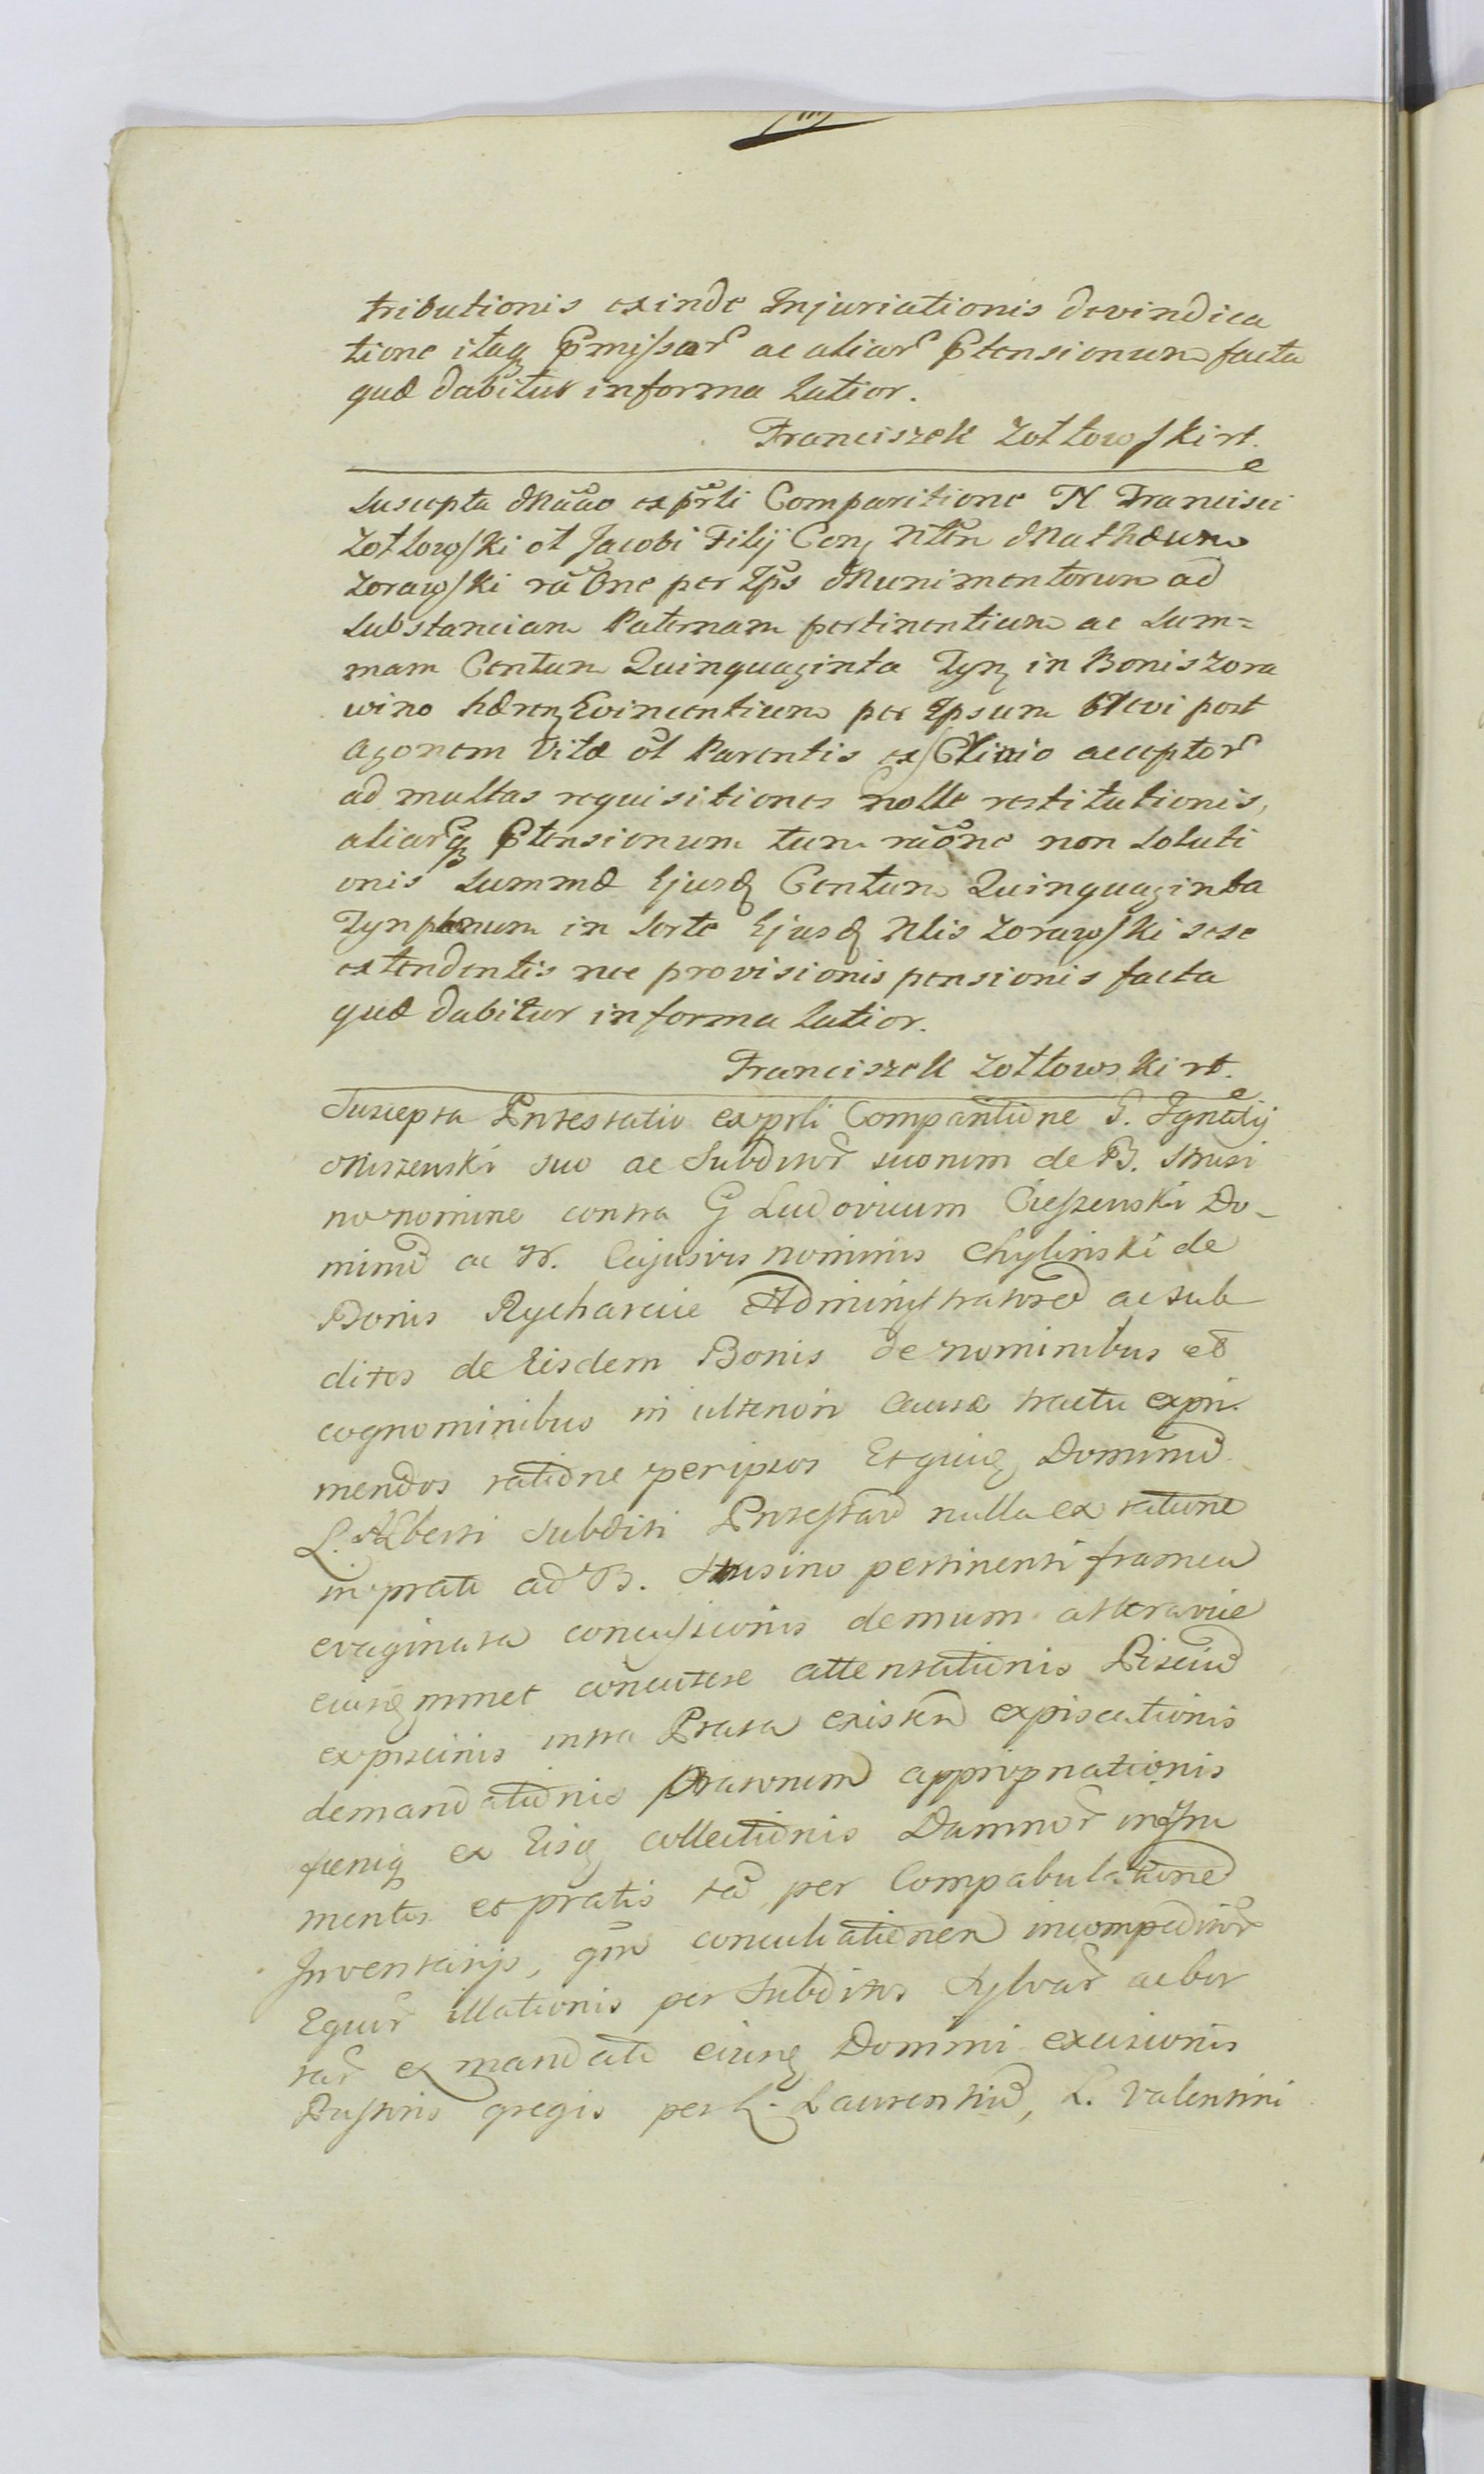 tributionis exinde Injuriationis devindica
tione itaq P̃missar̃ ac aliar̃ P̃tensionum facta
quæ dabitur in forma latior.
Franciszek Zołtowski rt.
Suscepta Mãão ex pr̃li Comparitione N Francisci
Zołtowski ol Jacobi Filij Con Nłĩm Mathæum
Zorawski rãõne per Ips Munimentorum ad
Substanciam Paternam pertinentium ac Sum=
mam Centum Quinquaginta Tyn in Bonis Zora
wino hæren Evincentium per Ipsum brevi post
Agonem Vitæ ol Parentis ex acceptor̃
ad multas requisitiones nolle restitutionis,
aliarq P̃tensionum tum rãõne non Soluti
onis Summæ Ejusd Centum Quinquaginta
Tynphonum in Sorte Ejusd Nlis Zorawski sese
extendentis nec provisionis pensionis facta
quæ dabitur in forma latior.
Franciszek Zołtowski rt.
Suscepta Protestatio ex prli Comparitione G. Ignatij
Miszewski suo ac Subditor̃ suorum de B. Strusi
no nomine contra G Ludovicum Cieszewski Do-
minũ ac N. Cujusvis nominis Chylinski de
Bonis Rycharcice Administratorẽ ac sub
ditos de Eisdem Bonis de nominibus et
cognominibus in ulteriori causæ tractu expri
mendos ratione per ipsos Dominũ
L. Alberti Subditi Protestan nulla ex ratione
in prato ad B. Strusino pertinenti framea
evaginata concussionis demum
eiusq mmet concutere attentationis Pisciũ
ex piscinis intra Prata existen expiscationis
demandationis Pratorum appropriationis
fœniq ex Eisq collectionis Damnor̃ in fru
mentis et pratis tã per Compabulationẽ
Inventarijs, qm̃ conculcationem incompeditor̃
Equor̃ illationis per Subditos Sylvar̃ ac bor
rar̃ ex mandato eiusq Domini excisionis
Pastoris gregis per L. Laurentiũ, L. Valentini